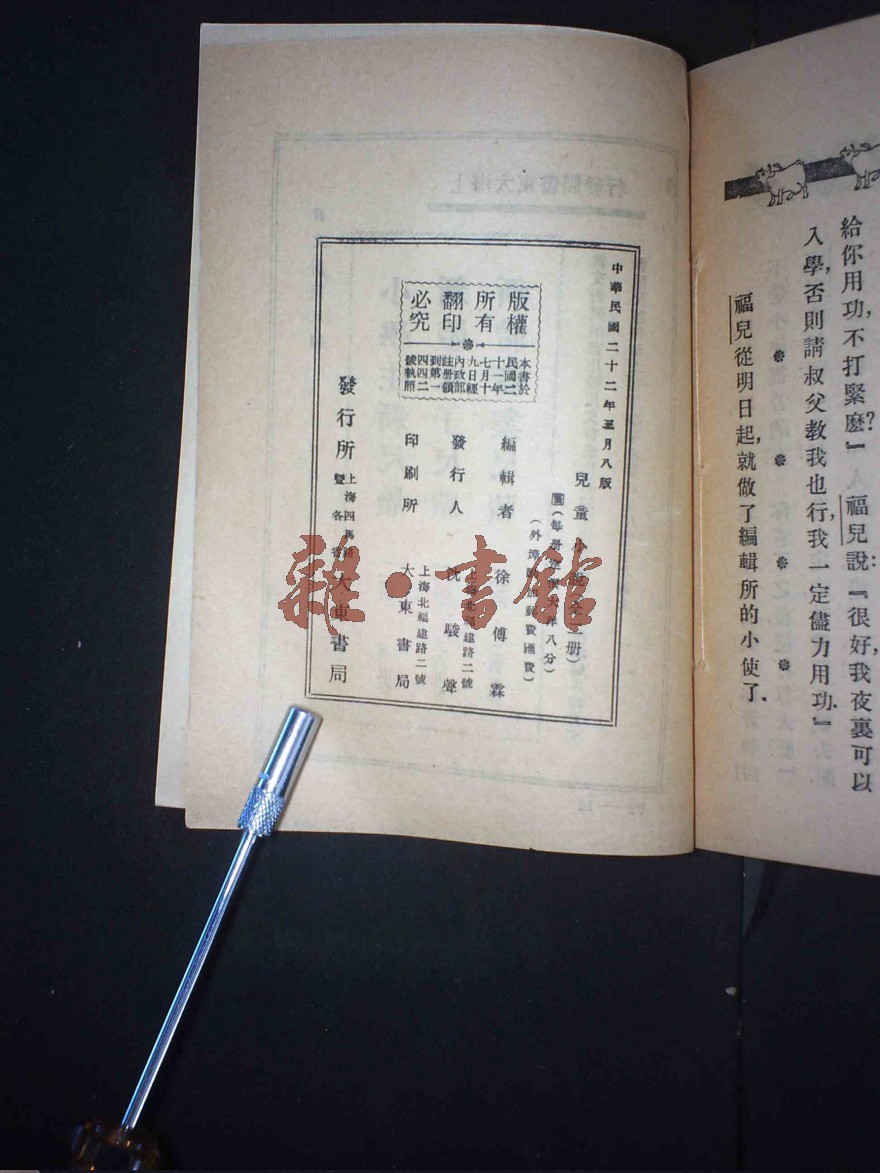 給你用功,不打緊麽?』福兒說:『很好,我夜裏可以
入學,否則請叔父教我也行,我一定儘力用功.』
福兒從明日起,就做了編輯所的小使了.
中華民國二十二年五月八版
版權所有翻印必究
本書於
民國二
十一年
七月十
九日經
內政部
註册領
到第一
四四二
號執照
兒童小說全二册
(每册定價大洋八分)
(外埠酌加郵費匯費)
編輯者 徐傅霖
發行人 沈駿聲
上海北福建路二號
印刷所 大東書局
上海北福建路二號
發行所 大東書局
上海四馬路
暨各省
雜·書館